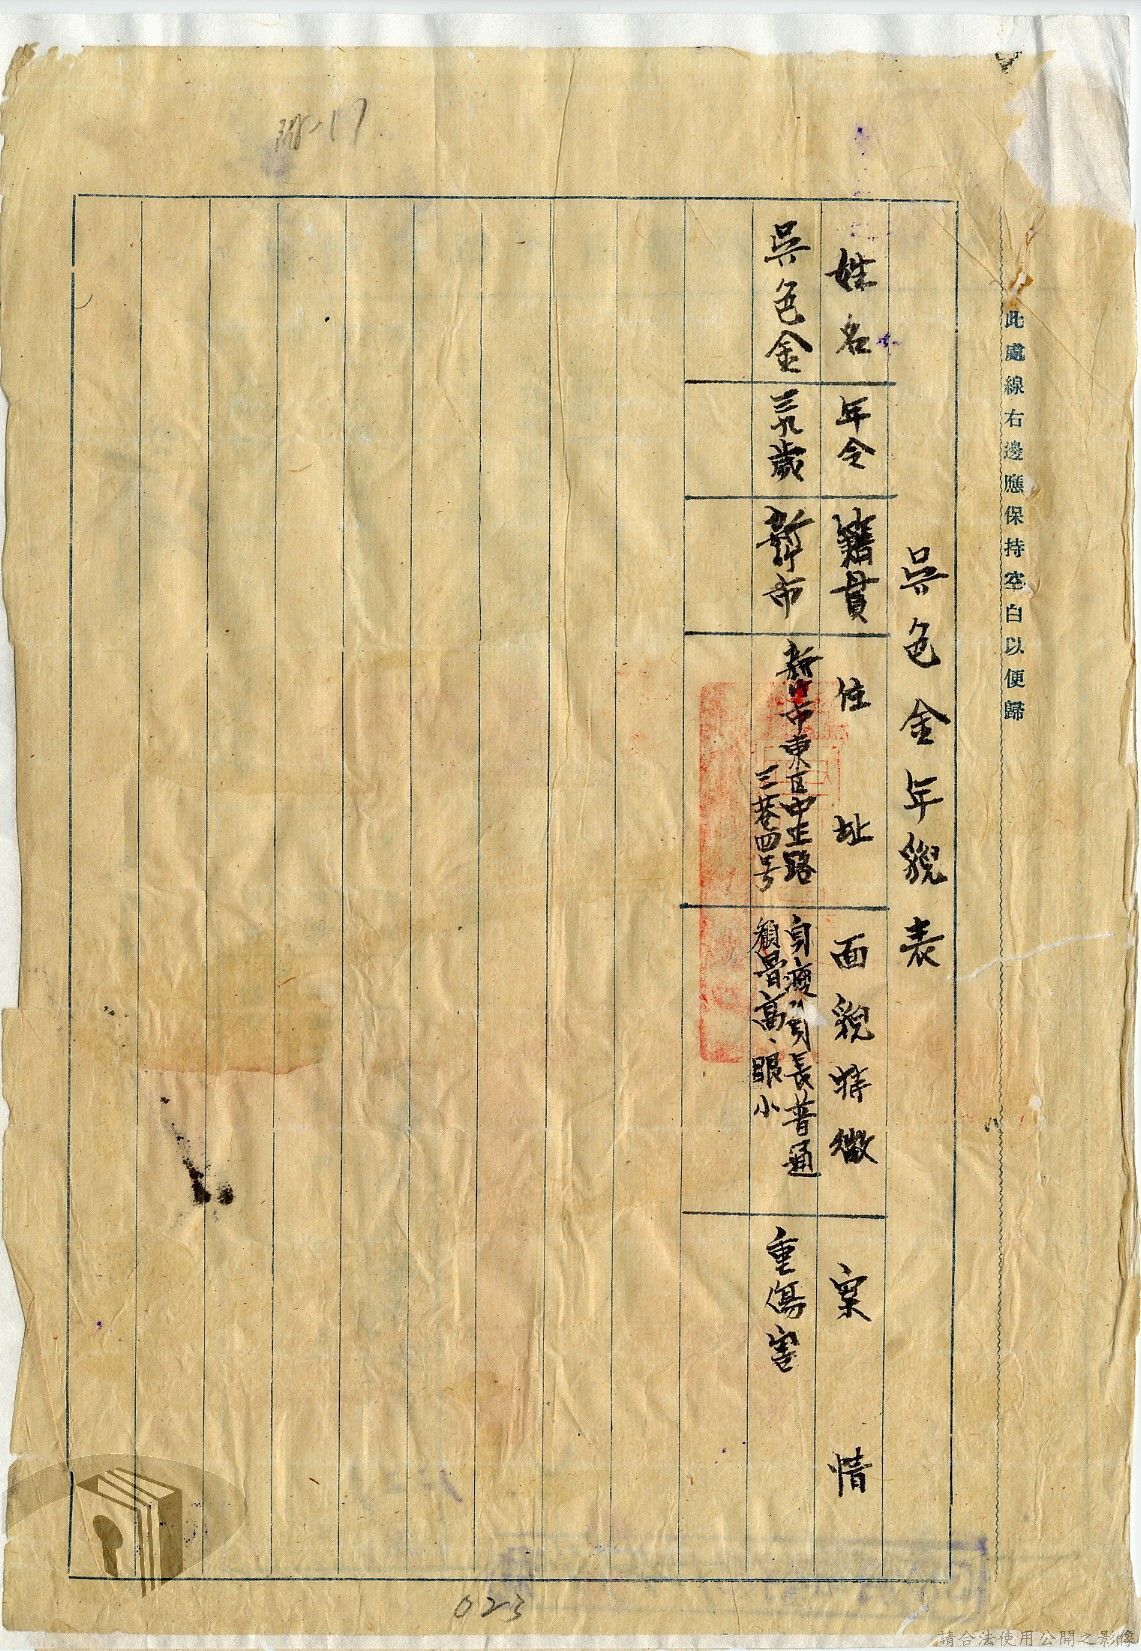 此處線右邊應保持空白以便歸
吳色金年貌表
姓名
年令
籍貫
住址
面貌特徵
案情
吳色金
三九歲
新竹市
新竹市東区中正路
三巷四号
身瘦身長普通
顴骨高、眼小
重傷害
023
請合法使用公開之影像